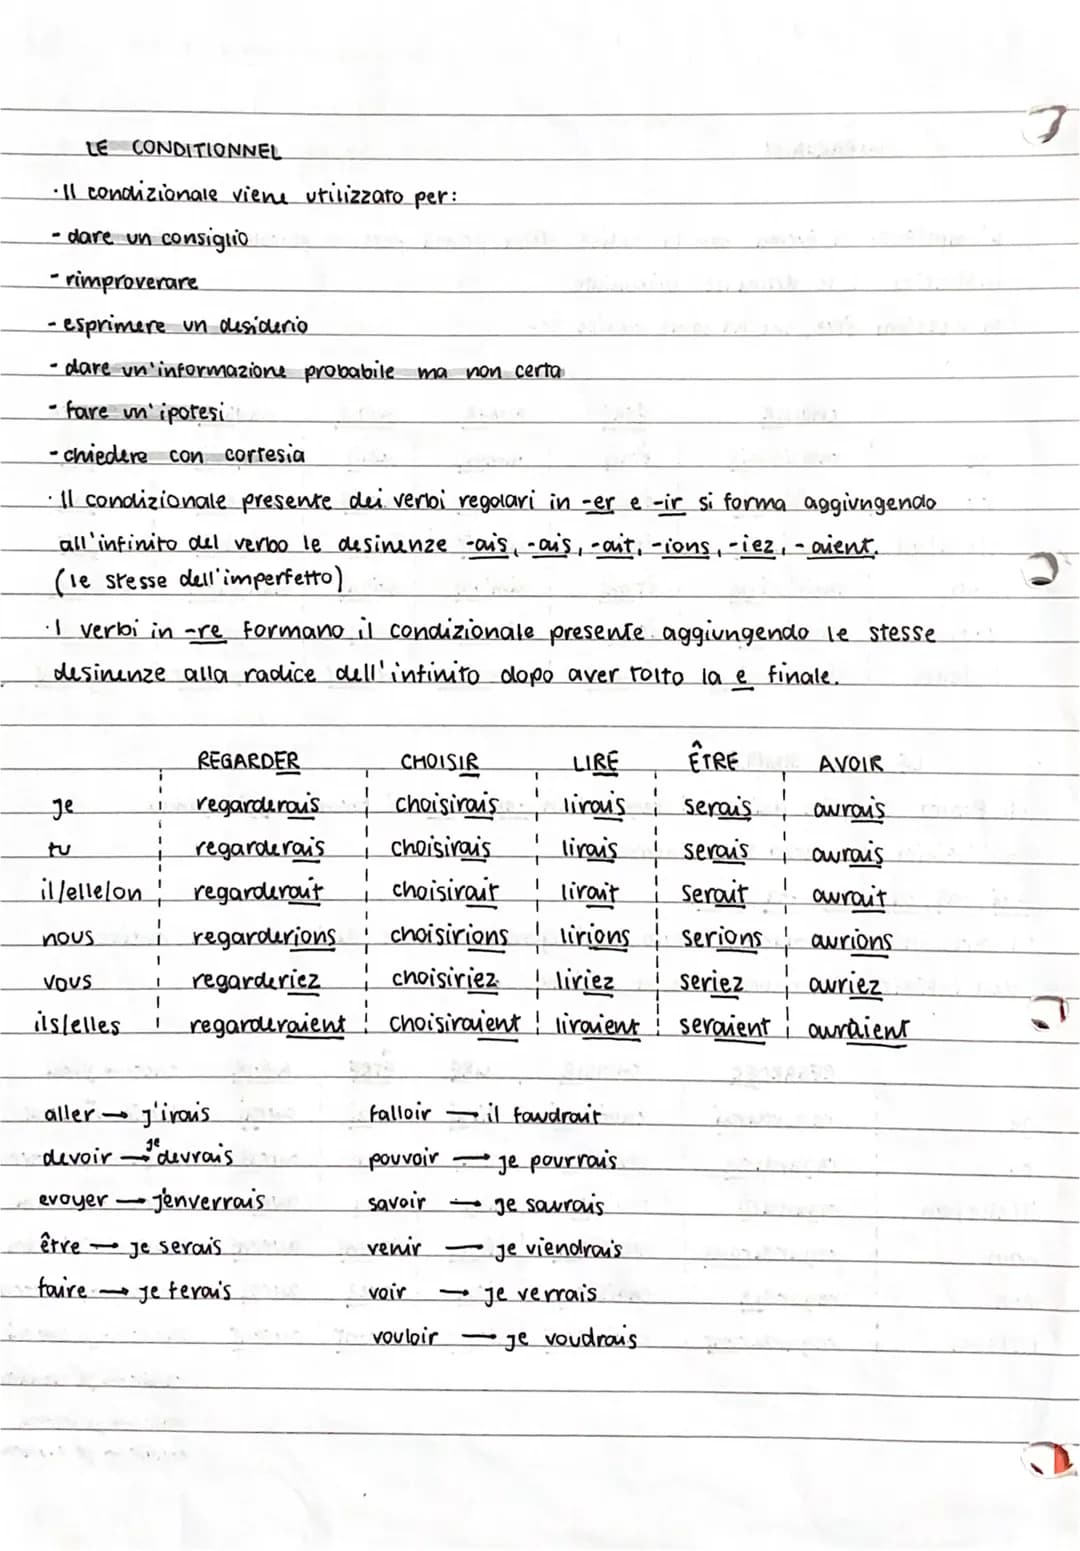 LE CONDITIONNEL
·Il condizionale viene utilizzato per:
- dare un consiglio
- rimproverare
- esprimere un desiderio
- dare un'informazione probabile ma non certa
- fare un'ipotesi
- chiedere con cortesia
·Il condizionale presente dei verbi regolari in -er e -ir si forma aggiungendo
all'infinito del verbo le desinenze -ais, -ais, -ait, -ions, -iez, -aient.
(le stesse dell'imperfetto)
·I verbi in -re formano il condizionale presente aggiungendo le stesse
desinenze alla radice dell'infinito dopo aver tolto la e finale.
REGARDER CHOISIR LIRE ÊTRE AVOIR
je regarderais choisirais lirais serais aurais
tu regarderais choisirais lirais serais aurais
il/elle/on regarderait choisirait lirait serait aurait
nous regarderions choisirions lirions serions aurions
vous regarderiez choisiriez liriez seriez auriez
ils/elles regarderaient choisiraient liraient seraient auraient
aller → j'irais falloir → il faudrait
devoir → je devrais pouvoir → je pourrais
evoyer → j'enverrais savoir → je saurais
être → je serais venir → je viendrais
faire → je ferais voir → je verrais
vouloir → je voudrais